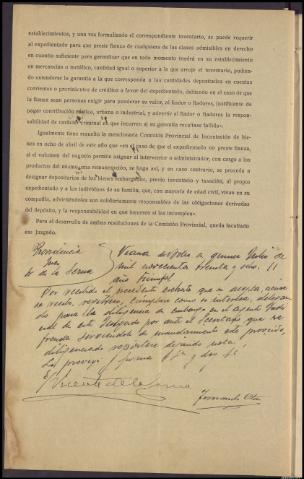 establecimientos, y una vez formalizado el correspondiente inventario, se puede requerir
al expedientado para que preste fianza de cualquiera de las clases admitidas en derecho
en cuantía suficiente para garantizar que en todo momento tendrá en su establecimiento
en mercancías o metálico, cantidad igual o superior a la que arroje el inventario, pudien-
do extenderse la garantía a la que corresponda a las cantidades depositadas en cuentas
corrientes o provisiones de créditos a favor del expedientado, debiendo en el caso de que
la fianza sean personas exigir para ponderar su valor, al fiador o fiadores, justificante de
pagar contribución rústica, urbana o industrial, y advertir al fiador o fiadores la responsa-
bilidad de carácter criminal en que incurren si su garantía resultase fallida».
Igualmente tiene resuelto la mencionada Comisión Provincial de Incautación de bie-
nes en ocho de abril de este año que «en el caso de que el expedientado no preste fianza,
si el volumen del negocio permite asignar al interventor o administrador, con cargo a los
productos del mismo, una remuneración, se haga así, y en caso contrario, se proceda a
designar depositarios de los bienes embargados, previo inventario y tasación, al propio
expedientado y a los individuos de su familia, que, con mayoría de edad civil, vivan en su
compañía, advirtiéndoles son solidariamente responsables de las obligaciones derivadas
del depósito, y la responsabilidad en que honores al las incumplen».
Para el desarrollo de ambas resoluciones de la Comisión Provincial, queda facultado
ese Juzgado.
Providencia
Juez
de la Serna
a quince Julio de
mil novecientos treinta y siete. II
año Triunfal
Por recibido el presente
se recibo, regístrese, cúmplase como se interesa,
do para la diligencia de embargo en el Agente Judi-
cial de este Juzgado por ante el Secretario que re-
frenda sirviéndole de mandamiento este proveído,
diligenciado
Lo proveyó y firma S Sª y doy fe.
E/
Vicente de la Serna
Fernando